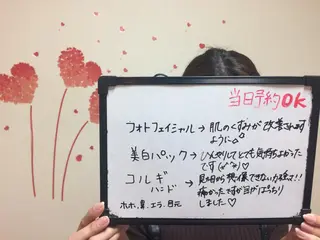 当日予約OK
フォトフェイシャル→肌のくすみが改善されます
ように
美白パック→ひんやりしてとても気持ちよかった
です♡
コルギ→
ハンド 痛かったですが目がぱっちり
ホホ、鼻、エラ、目元 しました♡